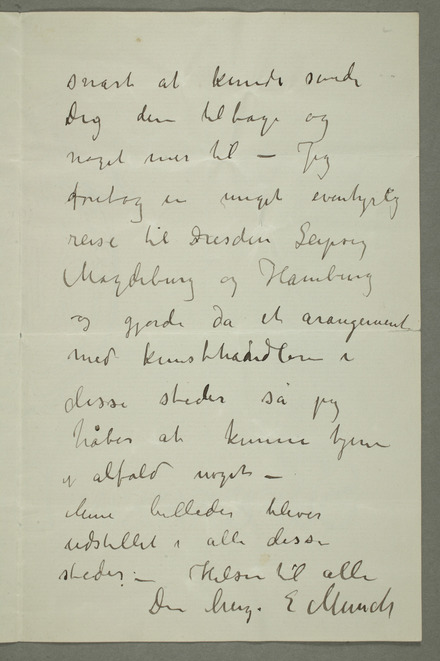 snart at kunde sende
Dig dem tilbage og
noget mer til – Jeg
foretog en meget eventyrlig
reise til Dresden Leipzig
Magdeburg og Hamburg
og gjorde da et arangement
med kunsthandlere i
disse steder så jeg
håber at kunne tjene
i alfald noget –
Mine billeder bliver
udstillet i alle disse
steder. – Hilsen til alle
Din heng. E Munch